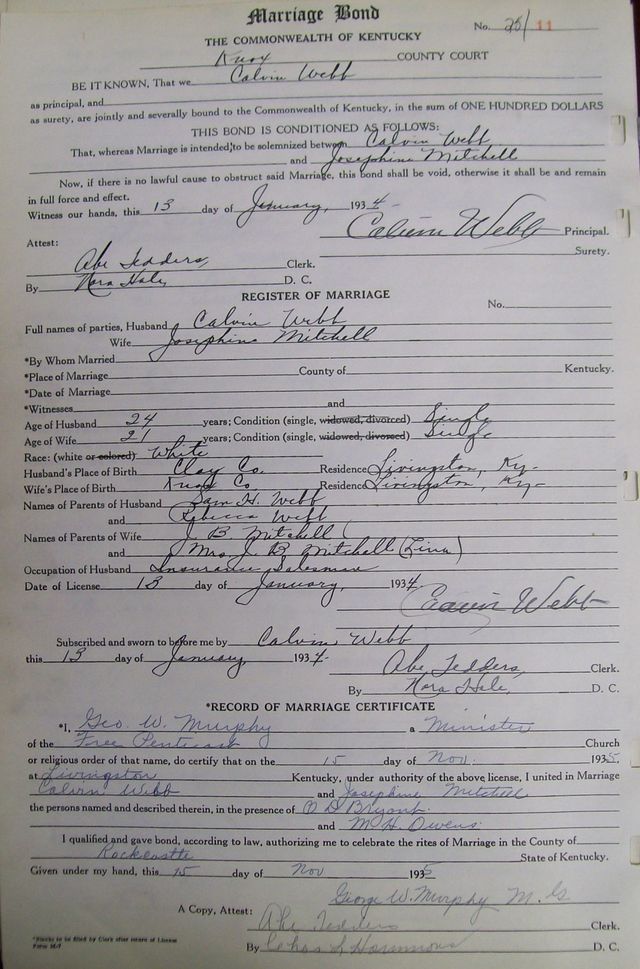 Marriage Bond
No. 25/ 11
THE COMMONWEALTH OF KENTUCKY
Knox COUNTY COURT
BE IT KNOWN, That we Calvin Webb
as principal, and
as surety, are jointly and severally bound to the Commonwealth of Kentucky, in the sum of ONE HUNDRED DOLLARS
THIS BOND IS CONDITIONED AS FOLLOWS:
That, whereas Marriage is intended to be solemnized between Calvin Webb
and Josephine Mitchell
Now, if there is no lawful cause to obstruct said Marriage, this bond shall be void, otherwise it shall be and remain
in full force and effect.
Witness our hands, this 13 day of January, 1934
Calvin Webb Principal.
Attest: Surety.
Abe Tedders, Clerk.
By Nora Hale, D. C.
REGISTER OF MARRIAGE
No.
Full names of parties, Husband Calvin Webb
Wife Josephine Mitchell
*By Whom Married
*Place of Marriage County of Kentucky.
*Date of Marriage
*Witnesses and
Age of Husband 24 years; Condition (single, widowed, divorced) Single
Age of Wife 21 years; Condition (single, widowed, divorced) Single
Race: (white or colored) White
Husband's Place of Birth Clay Co. Residence Livingston, Ky-
Wife's Place of Birth Knox Co. Residence Livingston, Ky-
Names of Parents of Husband Sam H. Webb
and Rebecca Webb
Names of Parents of Wife J. B Mitchell
and Mrs J. B Mitchell
Occupation of Husband Insurance Salesman
Date of License 13 day of January, 1934
Calvin Webb
Subscribed and sworn to before me by Calvin Webb
this 13 day of January 1934
Abe Tedders, Clerk.
By Nora Hale, D. C.
*RECORD OF MARRIAGE CERTIFICATE
*I, Geo. W. Murphy a Minister
of the Free Pentecost Church
or religious order of the same, do certify that on the 15 day of Nov. 1935
at Livingston Kentucky, under authority of the above license, I united in Marriage
Calvin Webb and Josephine Mitchell
the persons named and described therein, in the presence of O D Bryant
and M. H. Owens
I qualified and gave bond, according to law, authorizing me to celebrate the rites of Marriage in the County of
Rockcastle State of Kentucky.
Given under my hand, this 15 day of Nov 1935
George W. Murphy M. G
A Copy, Attest: Abe Tedders Clerk.
By D. C.
*Blanks to be filed by Clerk after return of License